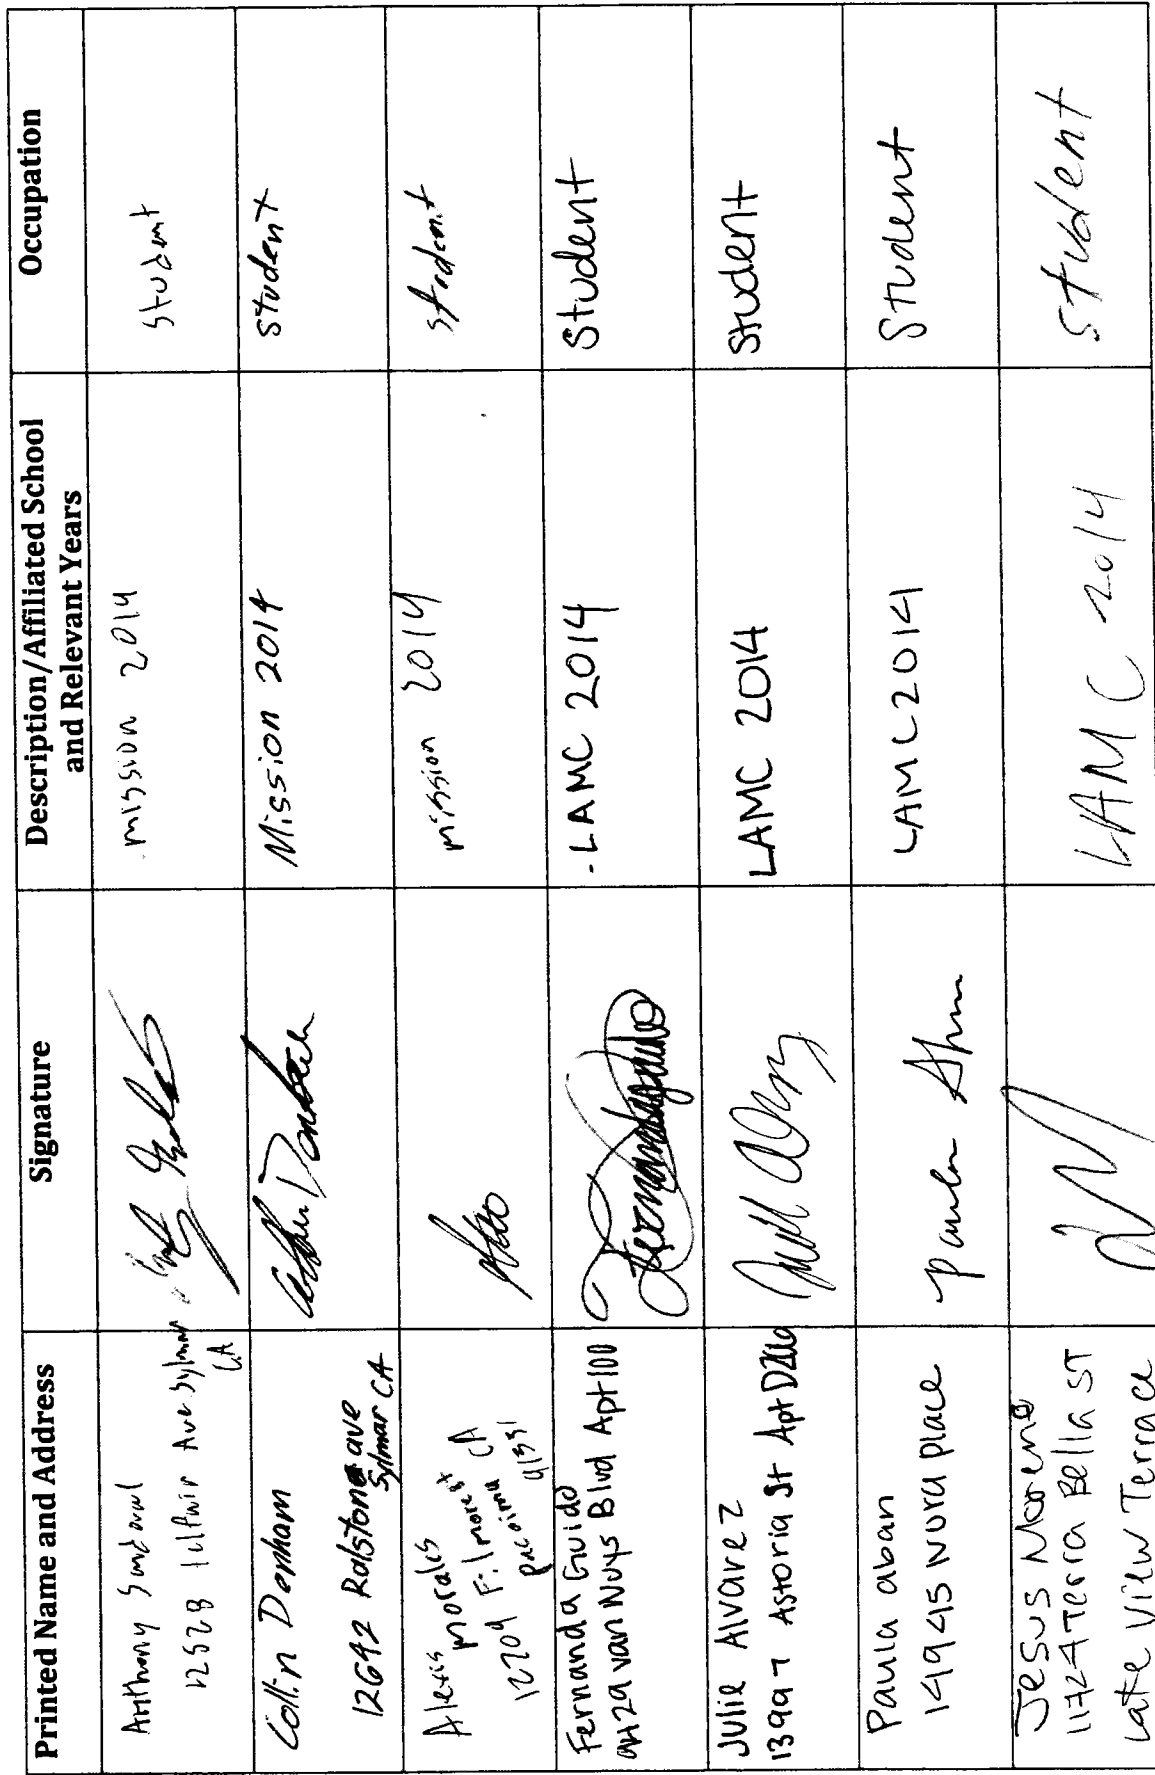 Printed Name and Address
Signature
Description/Affiliated School
and Relevant Years
Occupation
Anthony Sandoval
12528 Ave Sylmar
CA
mission 2014
student
Collin Donham
12692 Ralston ave
Sylmar CA
Mission 2014
student
Alexis
morales
12209 Filmore st
pacoima CA
91331
mission 2014
student
Fernanda Guido
9429 van Nuys Blvd Apt 100
Fernandaguido
- LAMC 2014
Student
Julie Alvarez
13997 Astoria St Apt
LAMC 2014
Student
Paula aban
14945 Nura place
Paula
LAMC 2014
Student
Jesus Moreno
11424 Terra Bella ST
Lake View Terrace
LAMC 2014
student